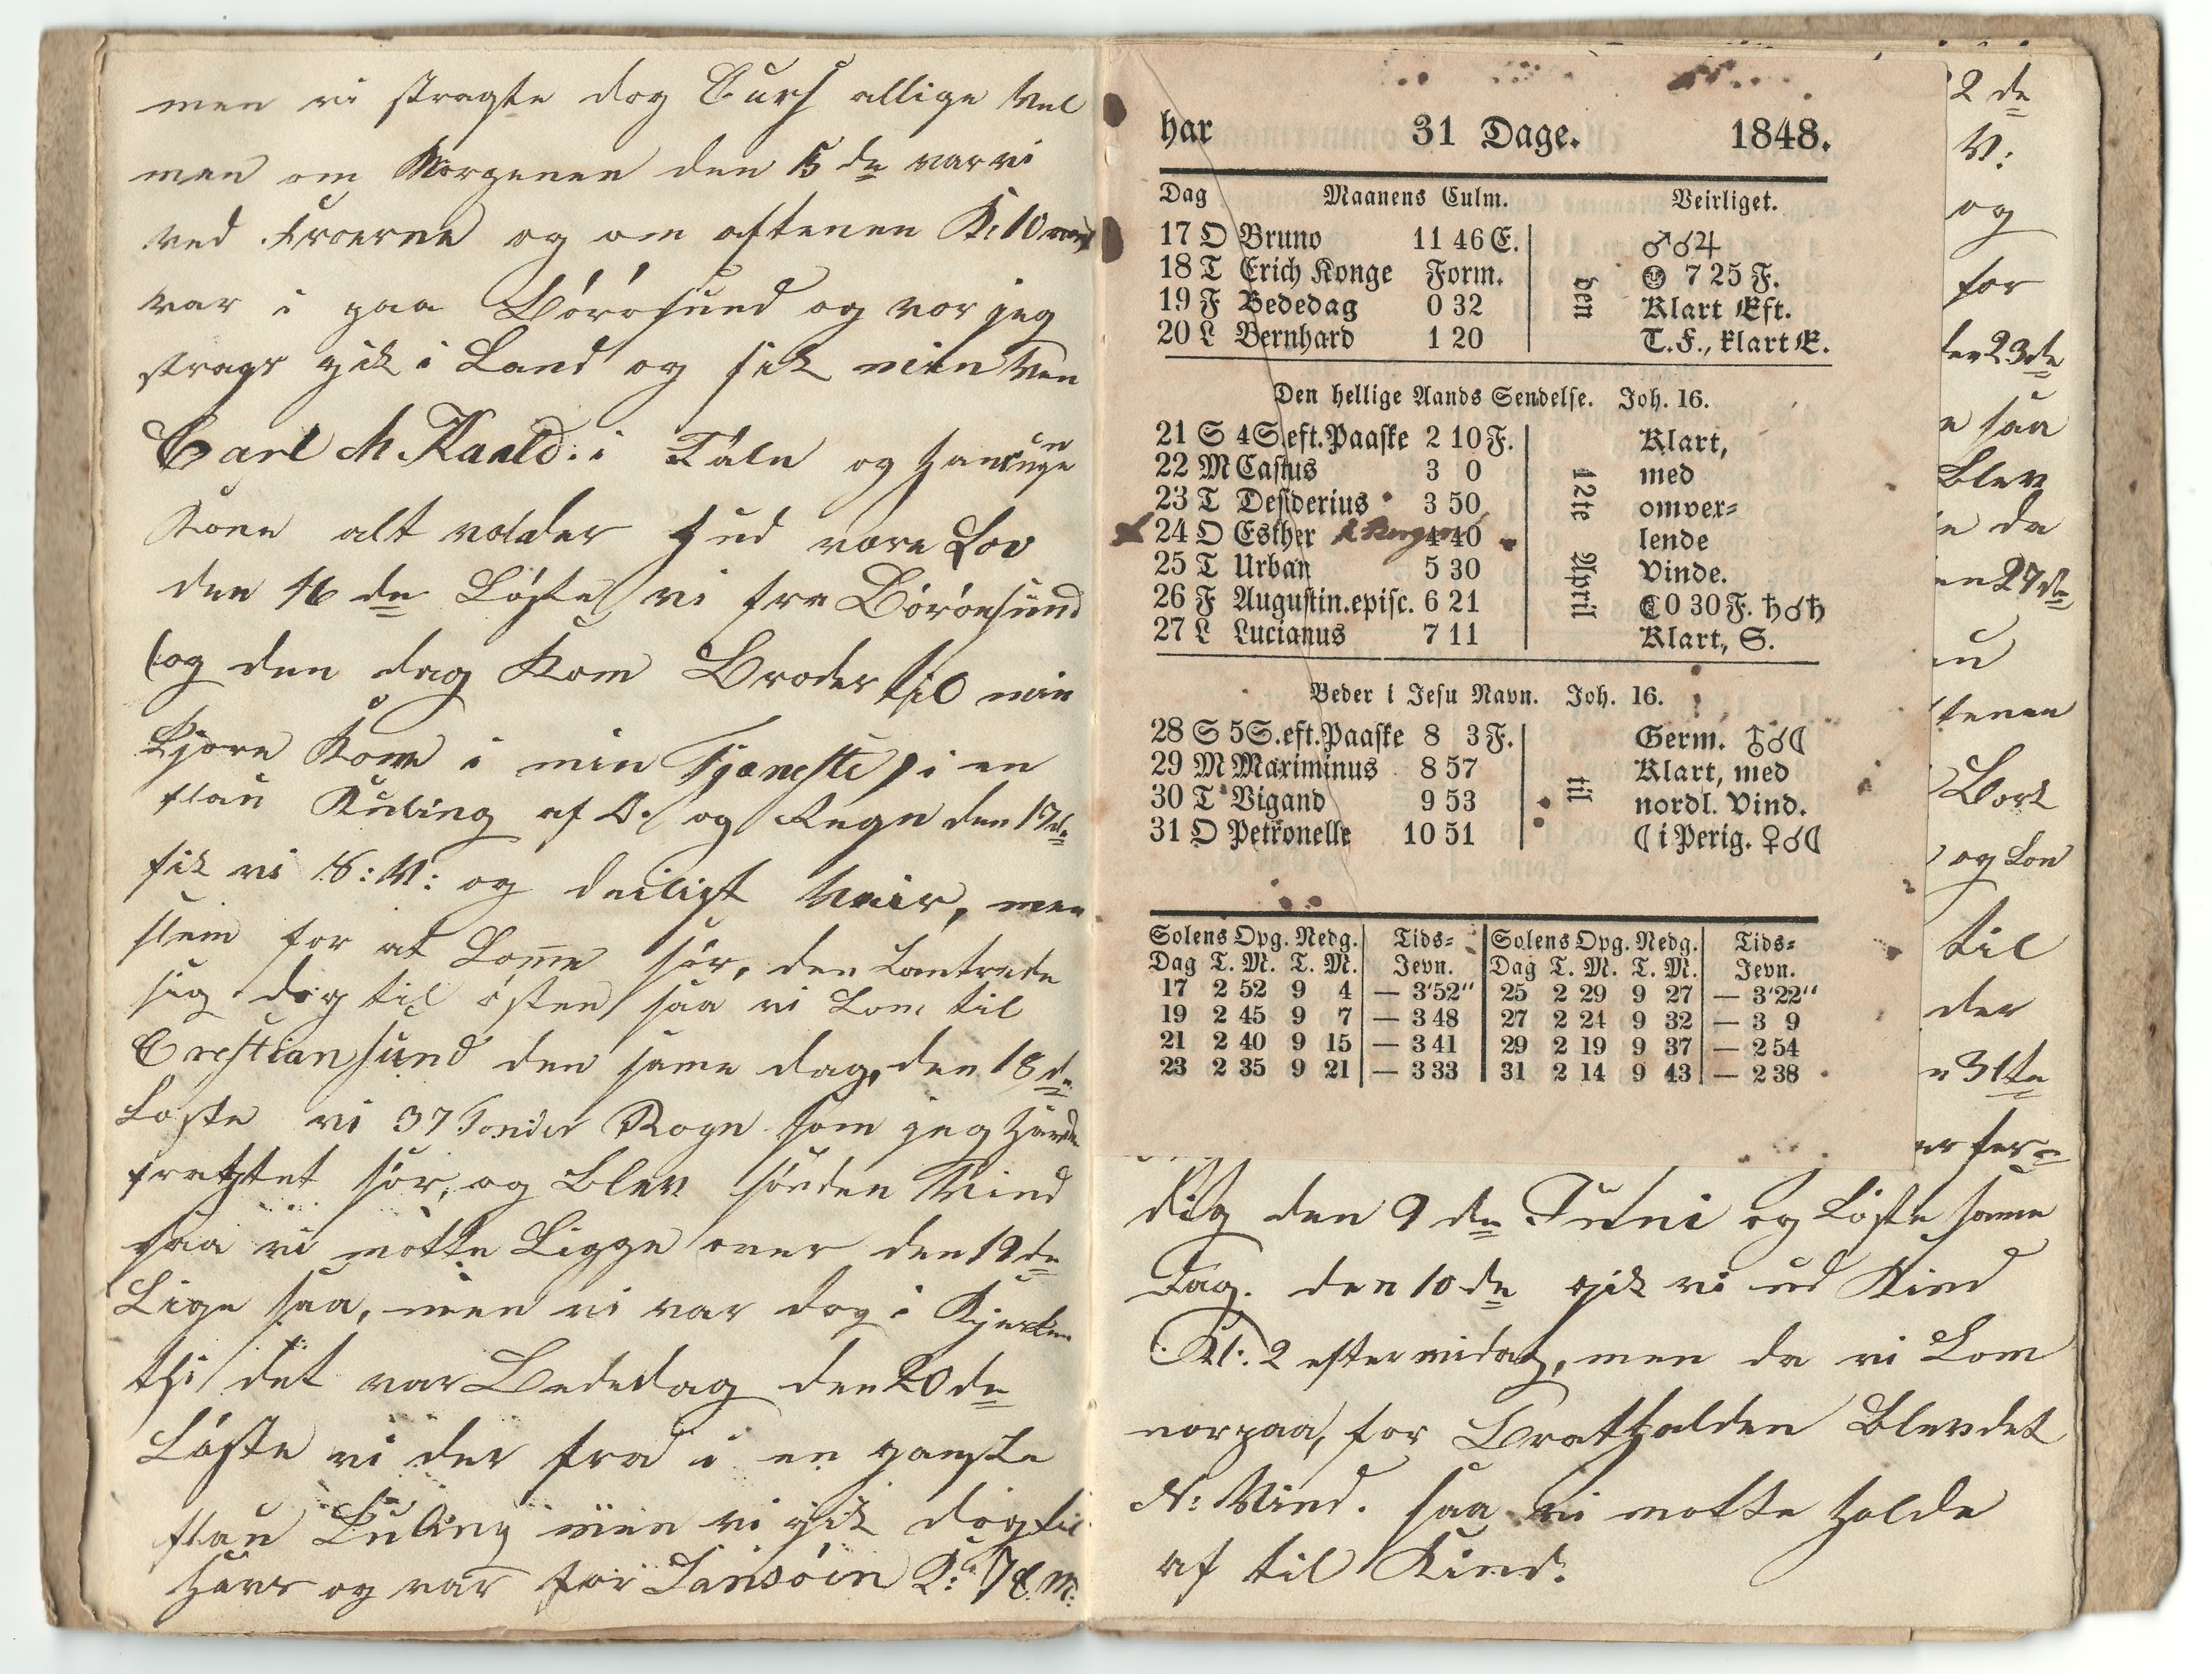 men vi stragte dog Curs allige Vel
men om Morgenen den 15 de var vi
ved og om aftenen K: 10
var i paa Börösund og vor jeg
strags gik i Land og fik min Ven
Carl M. Kaald: i Tale og Hans unge
Kone alt volder Hud vore Lov
den 16 de Löste vi fra Börösund
(og den dag Kom Broder til min
Kjære Kone i min Tjaneste) i en
flau Kuling af O. og Regn den 17de
fik vi S: V: og deiligt Veir, men
slem for at Komme sör, den
sig dog til östen saa vi kom til
Crestiansund den same dag, den 18 de
Loste vi 37 Tonder Rogn som jeg Havde
fragtet sör, og Blev sönden Vind
saa vi motte Ligge over den 19 de
Lige saa, men vi var dog i Kjerken
thi det var Bededag den 20 de
Löste vi der fra i en ganske
flau Kuling men vi gik dog til
Havs og var for K: 7 E. M:
har 31 Dage. 1848.
Dag Maanens Culm. Veirliget.
17 O Bruno 11 46 E. ♂☌♃
18 T Erich Konge Form. 7 25 F.
19 F Bededag 0 32 den Klart Eft.
20 L Bernhard 1 20 T. F., klart E.
Den hellige Aands Sendelse. Joh. 16.
21 S 4 S. eft. Paaske 2 10 F. Klart,
22 M Castus 3 0 12te med
23 T Desiderius 3 50 omver=
24 O Esther 4 40 lende
25 T Urban 5 30 April Vinde.
26 F Augustin. episc. 6 21 ☾ 0 30 F. ♄☌♄
27 L Lucianus 7 11 Klart, S.
Beder i Jesu Navn. Joh. 16.
28 S 5 S. eft. Paaske 8 3 F. Germ. ☌☾
29 M Maximinus 8 57 Klart, med
30 T Vigand 9 53 til nordl. Vind.
31 O Petronelle 10 51 ☾ i Perig. ♀☌☾
Solens Opg. Nedg. Tids= Solens Opg. Nedg. Tids=
Dag T. M. T. M. Jevn. Dag T. M. T. M. Jevn.
17 2 52 9 4 — 3'52" 25 2 29 9 27 — 3'22"
19 2 45 9 7 — 3 48 27 2 24 9 32 — 3 9
21 2 40 9 15 — 3 41 29 2 19 9 37 — 2 54
23 2 35 9 21 — 3 33 31 2 14 9 43 — 2 38
2 de
V:
og
for
den 23de
saa
Blev
da
27de
til
der
31te
dig den 9 de Juni og Löste same
Dag. den 10 de gik vi ud Kind
Kl: 2 eftermidag, men da vi kom
norpaa, for Brathalden Blev det
N: Vind. saa vi motte Holde
af til Kind.